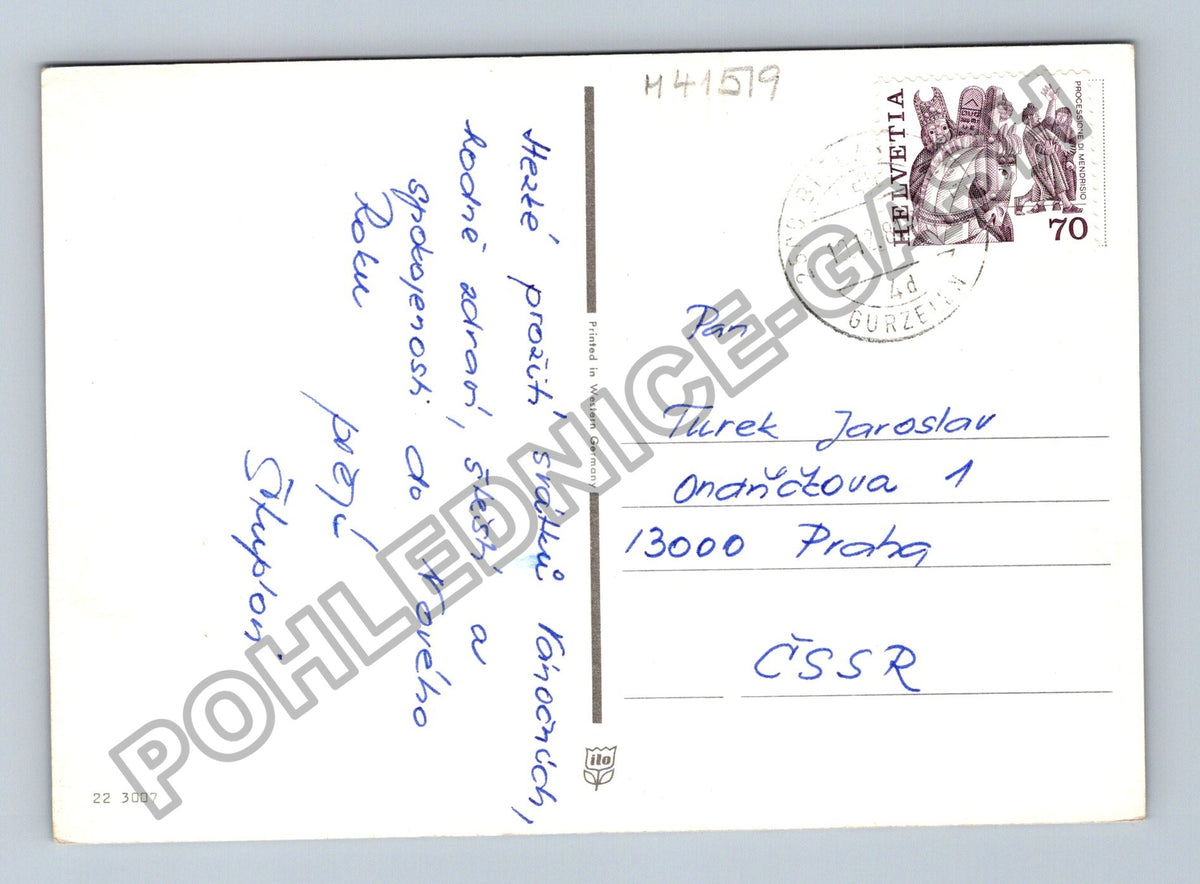 M 41579
HELVETIA
PROCESSIONE DI MENDRISIO
70
2500 BI
12
4d
GURZELEN
Hezké prožití svátků Vánočních,
hodně zdraví, štěstí a
spokojenosti do Nového
Roku
přejí
Štuplovi
Printed in Western Germany
Pan
Turek Jaroslav
Ondříčkova 1
13000 Praha
ČSSR
ilo
22 3007
POHLEDNICE-GASH